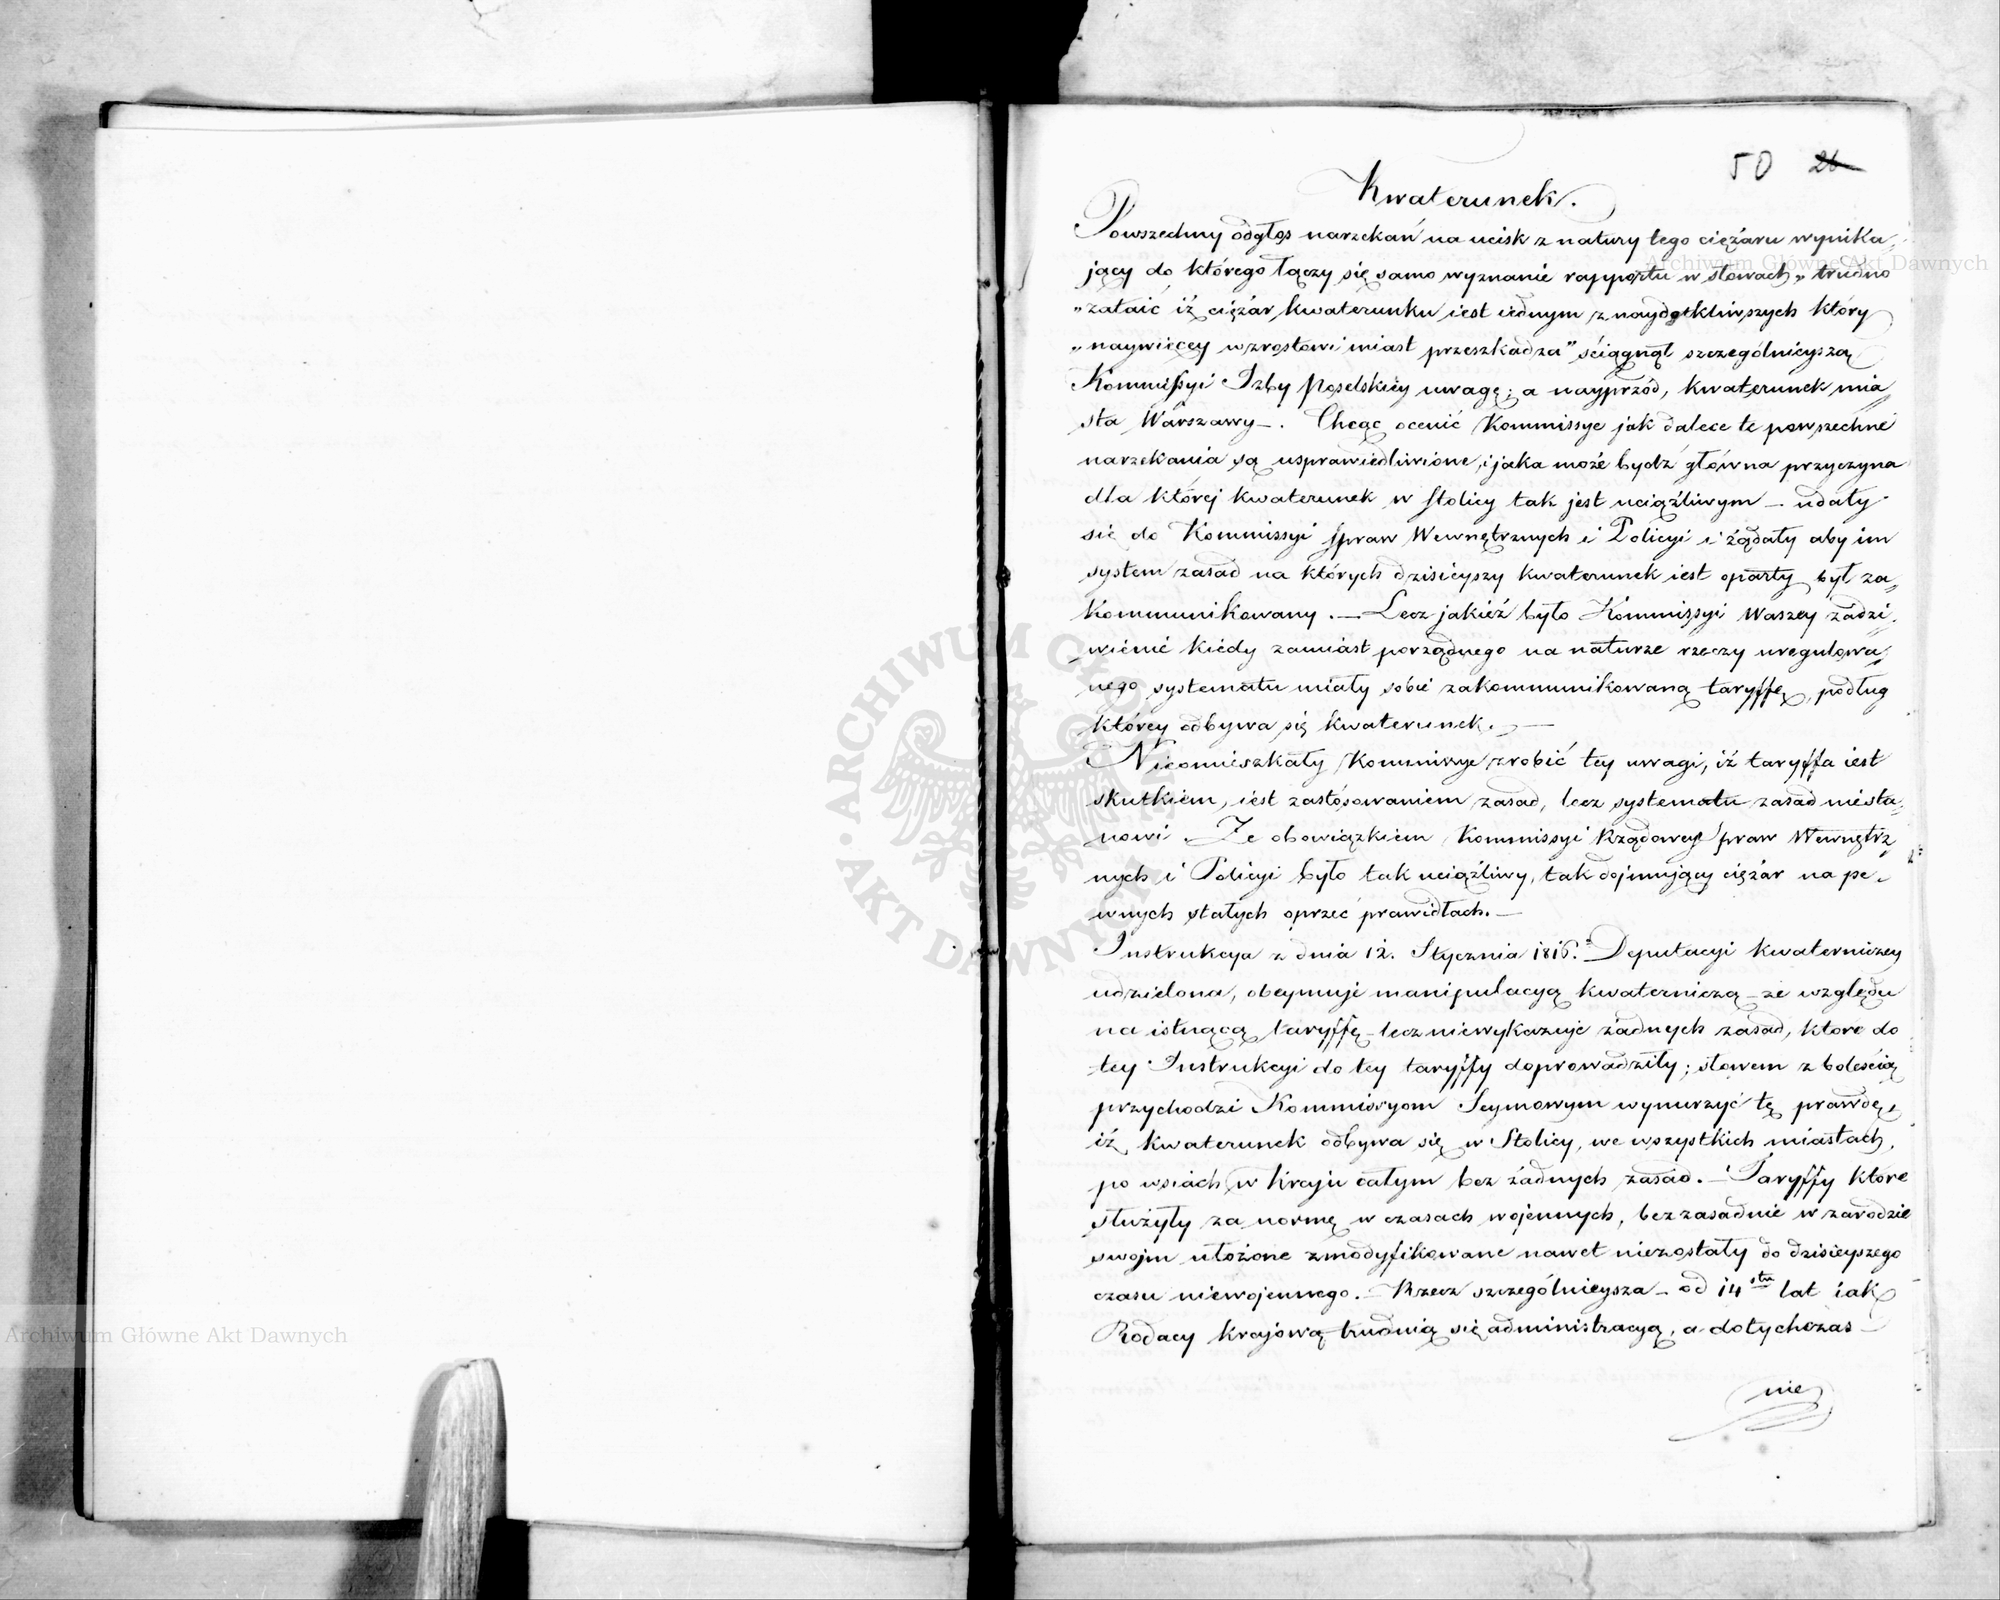 50 26
Kwaterunek.
Powszechny odgłos narzekań na ucisk z natury tego ciężaru wynika,
jący do którego łączy się samo wyznanie rapportu w słowach „ trudno
„zataić iż ciężar kwaterunku iest iednym z naydotkliwszych który
„naywięcey wzrostowi miast przeszkadza” ściągnął szczególnieyszą
Kommissyi Izby Poselskiey uwagę; a nayprzód, kwaterunek mia
sta Warszawy –. Chcąc ocenić Kommissye jak dalece te powszechne
narzekania są usprawiedliwione, i jaka może bydź główna przyczyna
dla której kwaterunek w stolicy tak jest uciążliwym – udały
się do Kommissyi spraw Wewnętrznych i Policyi i żądały aby im
system zasad na których dzisieyszy kwaterunek iest oparty był za„
kommunikowany. — Lecz jakież było Kommissyi Waszey zadzi„
wienie kiedy zamiast porządnego na naturze rzeczy uregulowa„
nego systematu miały sobie zakommunikowaną taryffę, podług
którey odbywa się kwaterunek. —
Nieomieszkały Kommissye zrobić tey uwagi, iż taryffa iest
skutkiem, iest zastósowaniem zasad, lecz systematu zasad niesta„
nowi. Że obowiązkiem Kommissyi Rządowey spraw Wewnętrz
nych i Policyi było tak uciążliwy, tak dojmujący ciężar na pe„
wnych stałych oprzeć prawidłach. —
Instrukcya z dnia 12. Stycznia 1816. Deputacyi kwaterniczey
udzielona, obeymuje manipulacyą kwaterniczą – ze względu
na istnącą taryffę – lecz niewykazuje żadnych zasad, które do
tey Instrukcyi do tey taryffy doprowadziły; słowem z boleścią
przychodzi Kommissyom Seymowym wynurzyć tę prawdę,
iż kwaterunek odbywa się w Stolicy, we wszystkich miastach,
po wsiach w kraju całym bez żadnych zasad. – Taryffy które
służyły za normę w czasach wojennych, bezzasadnie w zarodzie
swojm ułożone zmodyfikowane nawet niezostały do dzisieyszego
czasu niewojennego. – Rzecz szczególnieysza – od 14stu lat iak
Rodacy krajową trudnią się administracyą, a dotychczas –
nie
Archiwum Główne Akt Dawnych
Archiwum Główne Akt Dawnych
ARCHIWUM GŁÓWNE AKT DAWNYCH